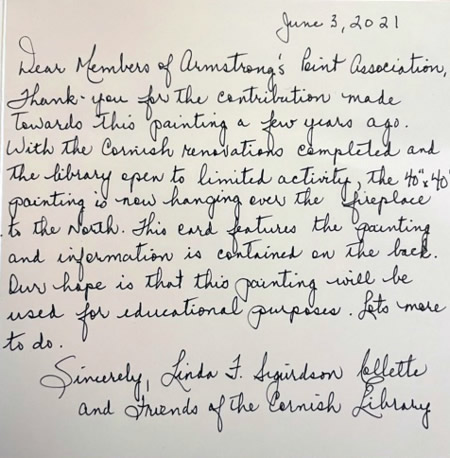 June 3, 2021
Dear Members of Armstrong's Point Association,
Thank-you for the contribution made
towards this painting a few years ago.
With the Cornish renovations completed and
the library open to limited activity, the 40"x40"
painting is now hanging over the fireplace
to the North. This card features the painting
and information is contained on the back.
Our hope is that this painting will be
used for educational purposes. Lots more
to do.
Sincerely, Linda F. Sigurdson Collette
and Friends of the Cornish Library